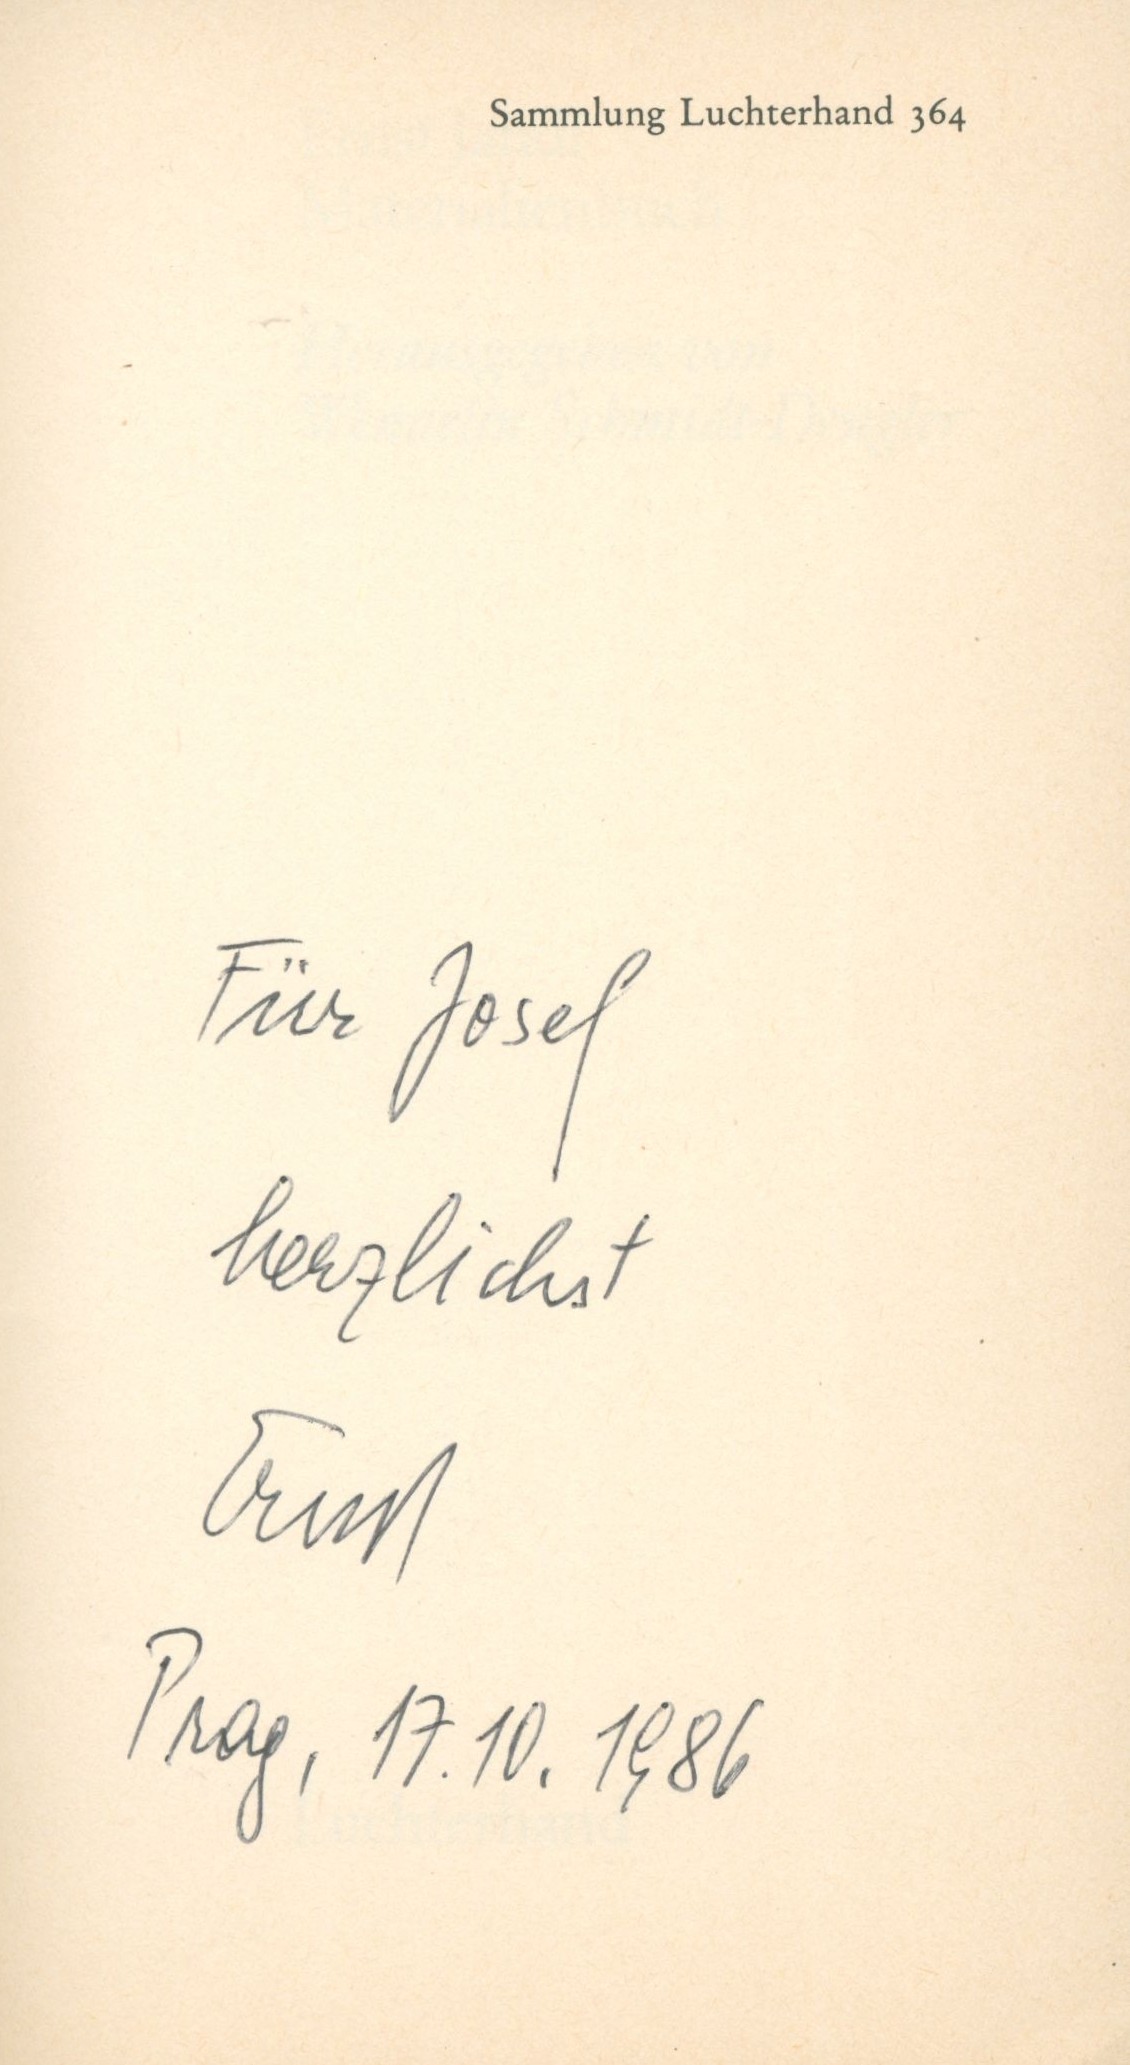 Sammlung Luchterhand 364
Für Josef
herzlichst
Ernst
Prag, 17.10.1986